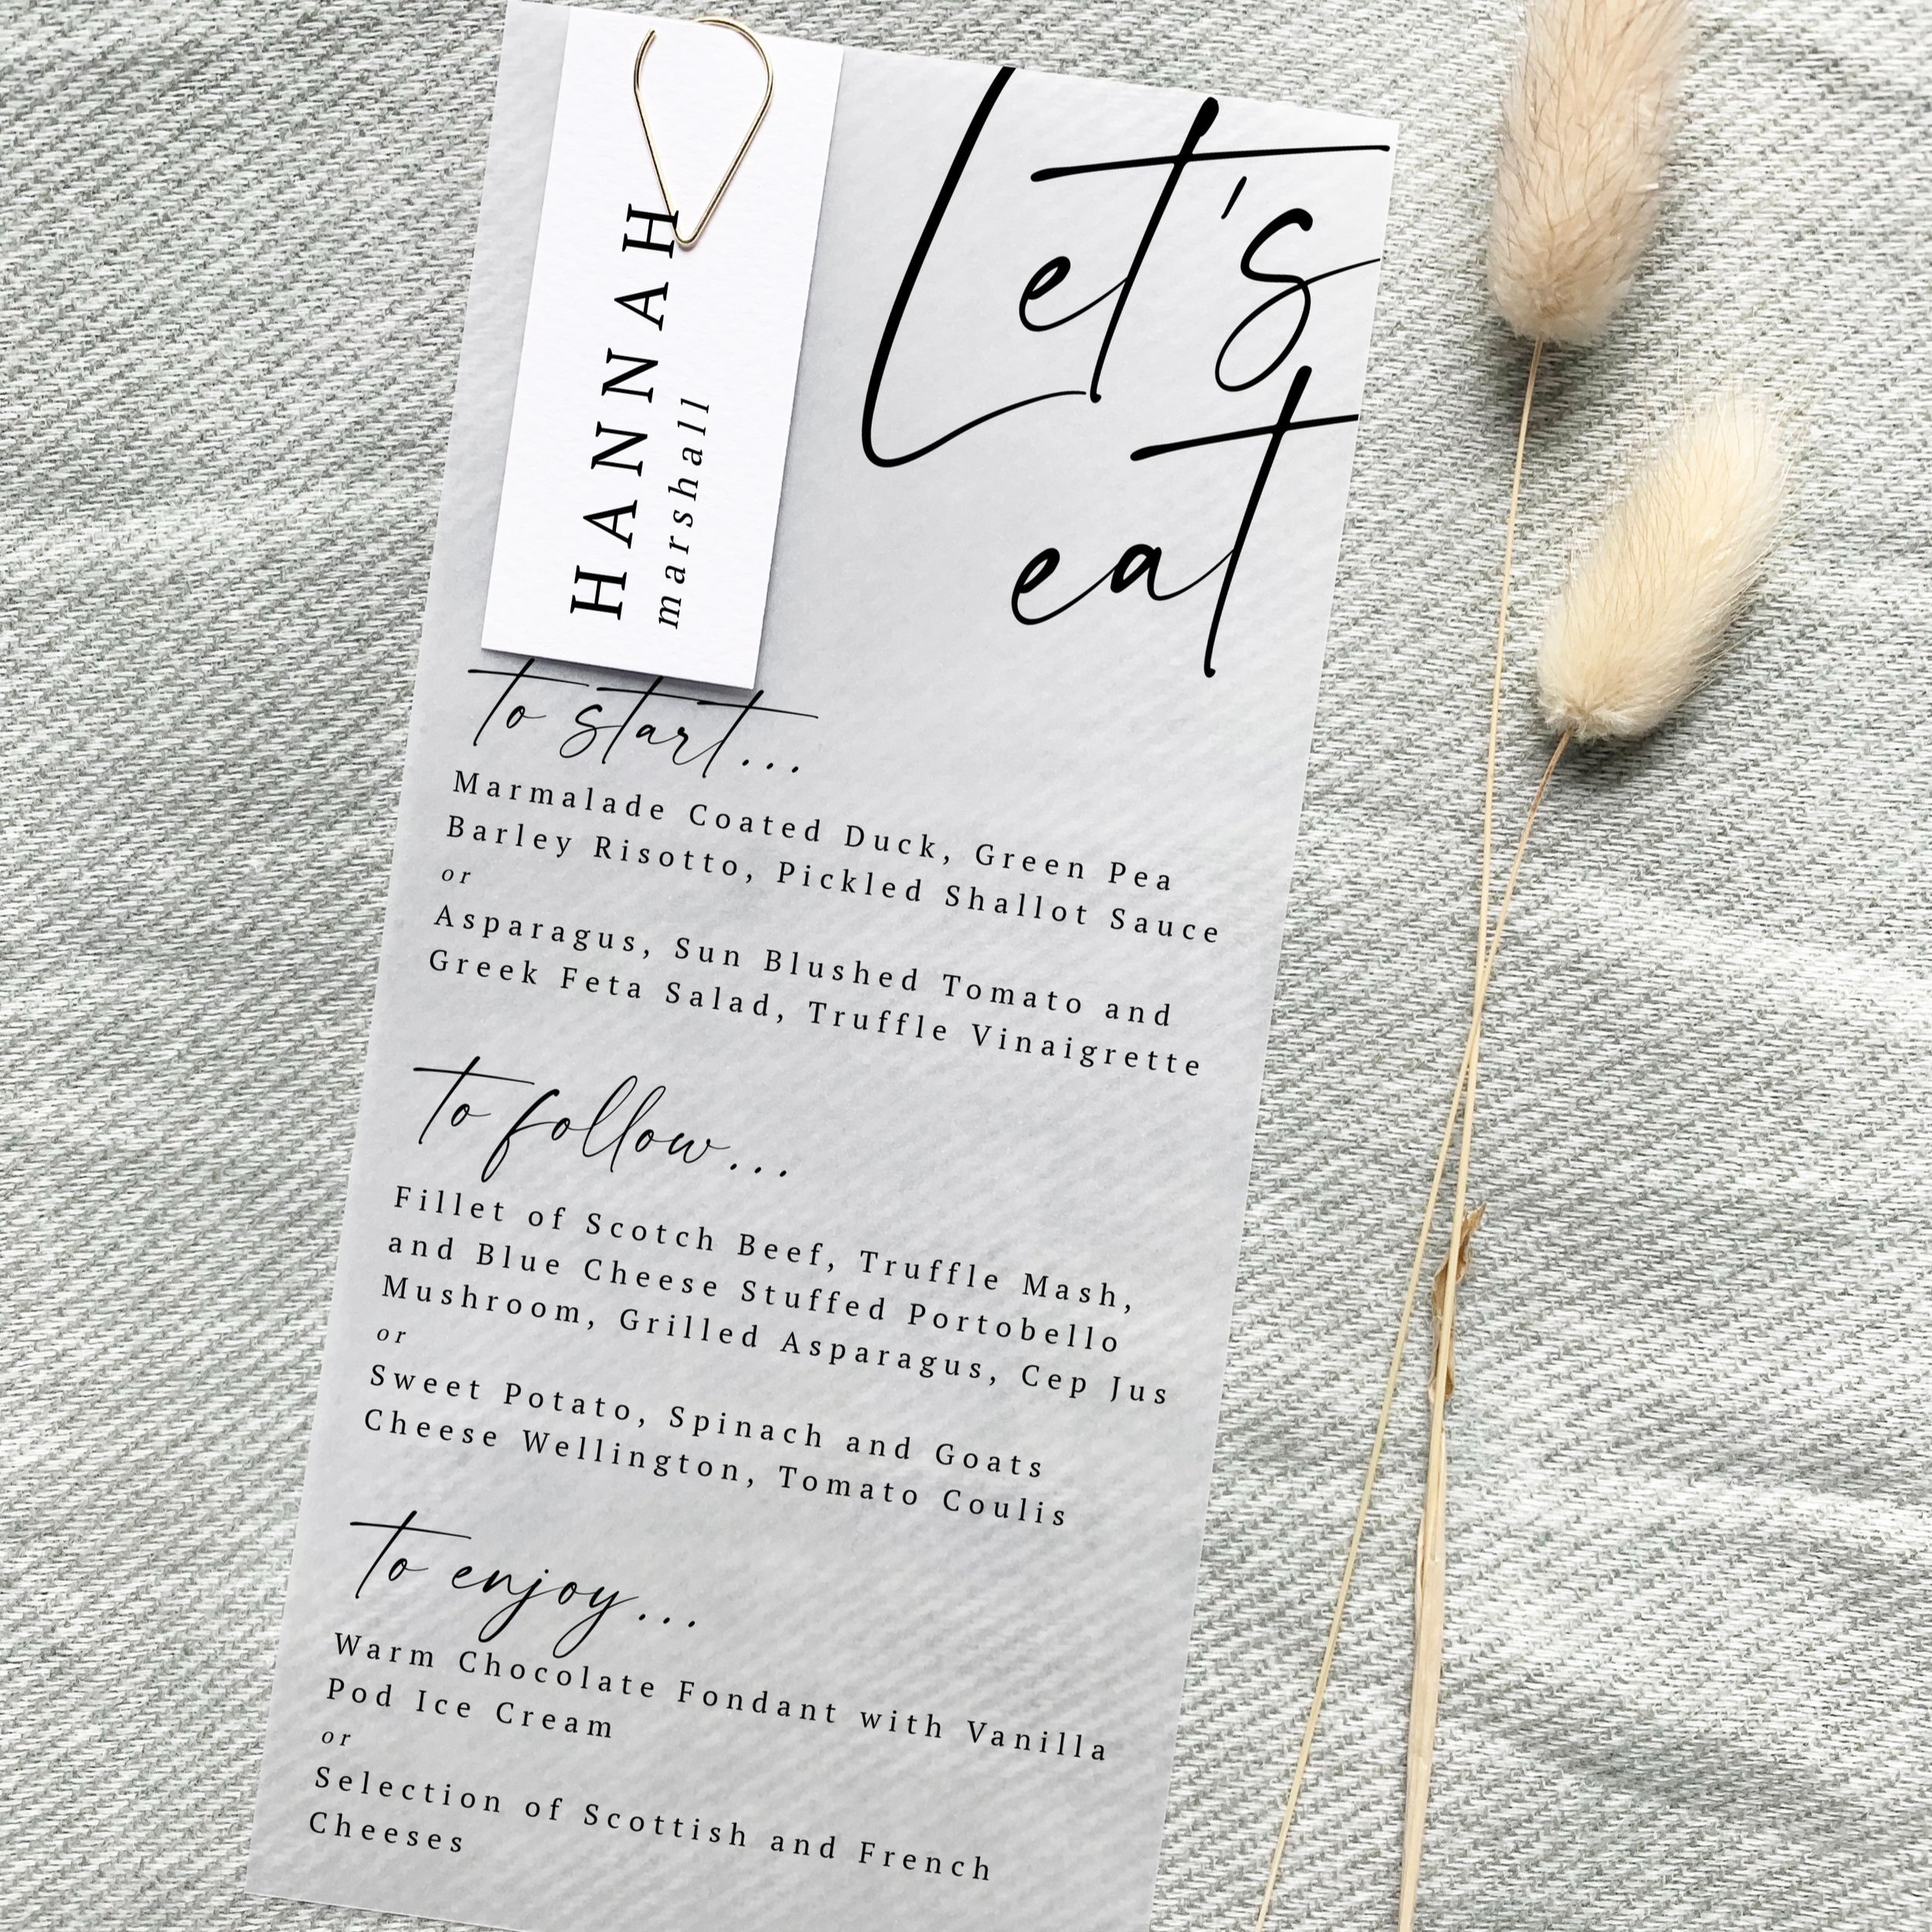 HANNAH
marshall
Let's
eat
to start...
Marmalade Coated Duck, Green Pea
Barley Risotto, Pickled Shallot Sauce
or
Asparagus, Sun Blushed Tomato and
Greek Feta Salad, Truffle Vinaigrette
to follow...
Fillet of Scotch Beef, Truffle Mash,
and Blue Cheese Stuffed Portobello
Mushroom, Grilled Asparagus, Cep Jus
or
Sweet Potato, Spinach and Goats
Cheese Wellington, Tomato Coulis
to enjoy...
Warm Chocolate Fondant with Vanilla
Pod Ice Cream
or
Selection of Scottish and French
Cheeses